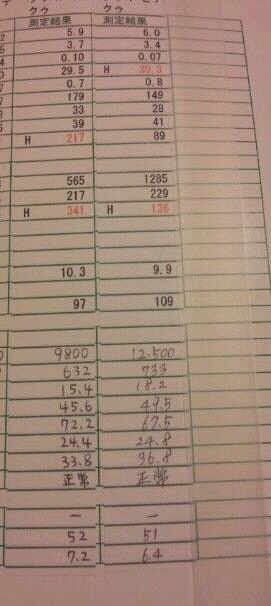 クゥ クゥ
測定結果 測定結果
5.9 6.0
3.7 3.4
0.10 0.07
29.5 H 30.3
0.7 0.8
179 149
33 28
39 41
H 217 89
565 1285
217 229
H 341 H 136
10.3 9.9
97 109
9800 12.500
632 733
15.4 18.2
45.6 49.5
72.2 67.5
24.4 24.8
33.8 36.8
正常 正常
— —
52 51
7.2 6.4